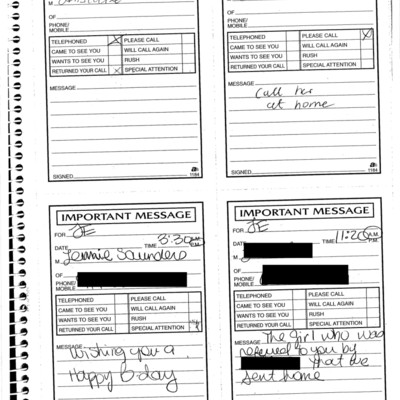 OF
PHONE/
MOBILE
TELEPHONED X PLEASE CALL
CAME TO SEE YOU WILL CALL AGAIN
WANTS TO SEE YOU RUSH
RETURNED YOUR CALL X SPECIAL ATTENTION
MESSAGE
SIGNED 1184
OF
PHONE/
MOBILE
TELEPHONED PLEASE CALL X
CAME TO SEE YOU WILL CALL AGAIN
WANTS TO SEE YOU RUSH
RETURNED YOUR CALL SPECIAL ATTENTION
MESSAGE
Call her
at home
SIGNED 1184
IMPORTANT MESSAGE
FOR JE
DATE TIME 3:30 A.M. P.M.
M Jennie Saunders
OF
PHONE/
MOBILE
TELEPHONED PLEASE CALL
CAME TO SEE YOU WILL CALL AGAIN
WANTS TO SEE YOU RUSH
RETURNED YOUR CALL SPECIAL ATTENTION
MESSAGE
Wishing you a
Happy B-day
IMPORTANT MESSAGE
FOR JE
DATE TIME 11:20 A.M. P.M.
M
OF
PHONE/
MOBILE
TELEPHONED PLEASE CALL
CAME TO SEE YOU WILL CALL AGAIN
WANTS TO SEE YOU RUSH
RETURNED YOUR CALL SPECIAL ATTENTION
MESSAGE The girl who was
referred to you by
that we
sent home